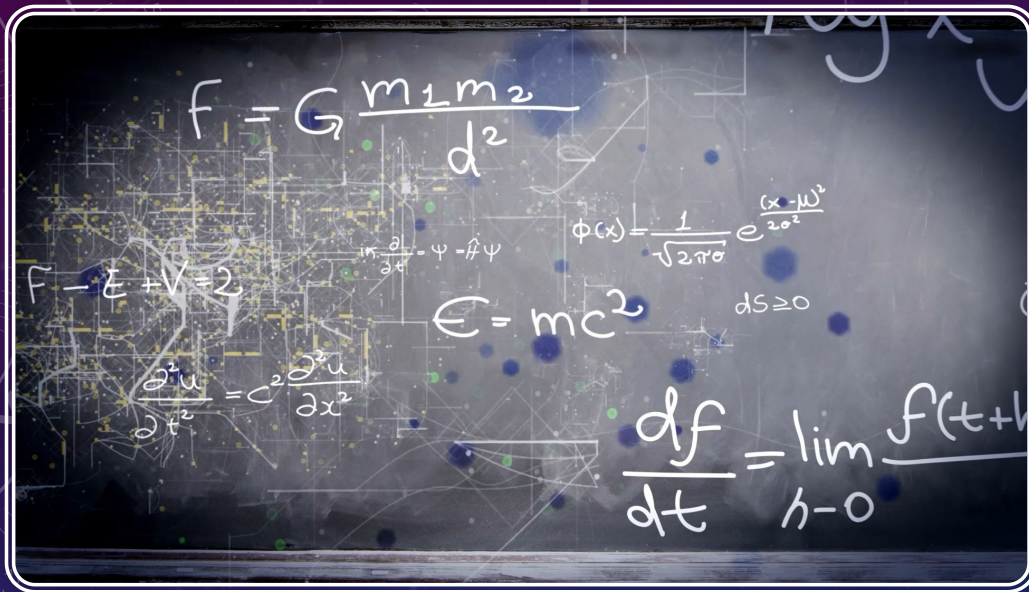 log x y
F = G m1m2/d²
Φ(x) = 1/√2πσ e^(x-μ)²/2σ²
iħ ∂/∂t = Ψ = Ĥ Ψ
F - E + V = 2
E = mc²
dS ≥ 0
∂²u/∂t² = c² ∂²u/∂x²
df/dt = lim h-0 f(t+h